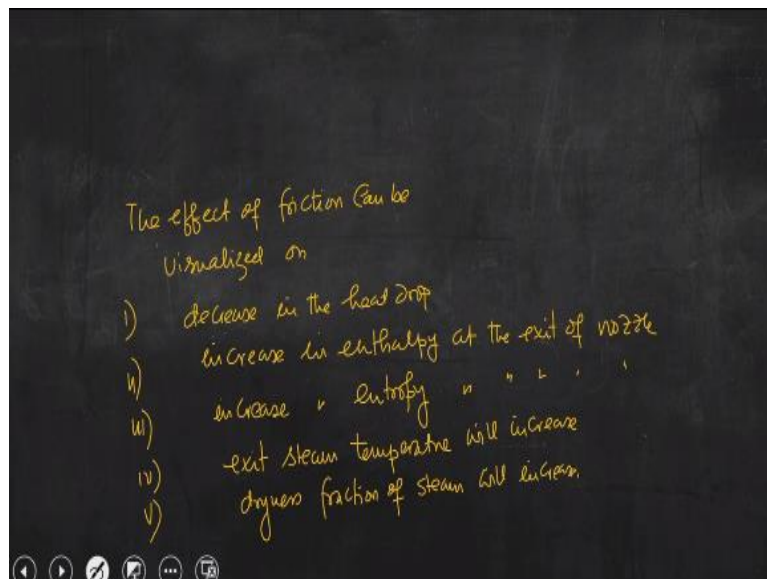 The effect of friction can be
visualized on
i) decrease in the heat drop
ii) increase in enthalpy at the exit of nozzle
iii) increase " entropy " " " " "
iv) exit steam temperature will increase
v) dryness fraction of steam will increase.